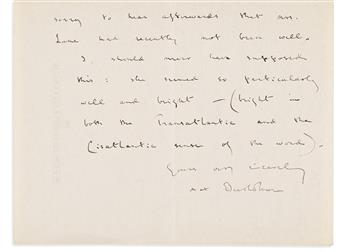 sorry to hear afterwards that Mrs.
Lane had recently not been well.
I should never have supposed
this: she seemed so particularly
well and bright — (bright in
both the Transatlantic and the
Cisatlantic sense of the word).
Yours very sincerely